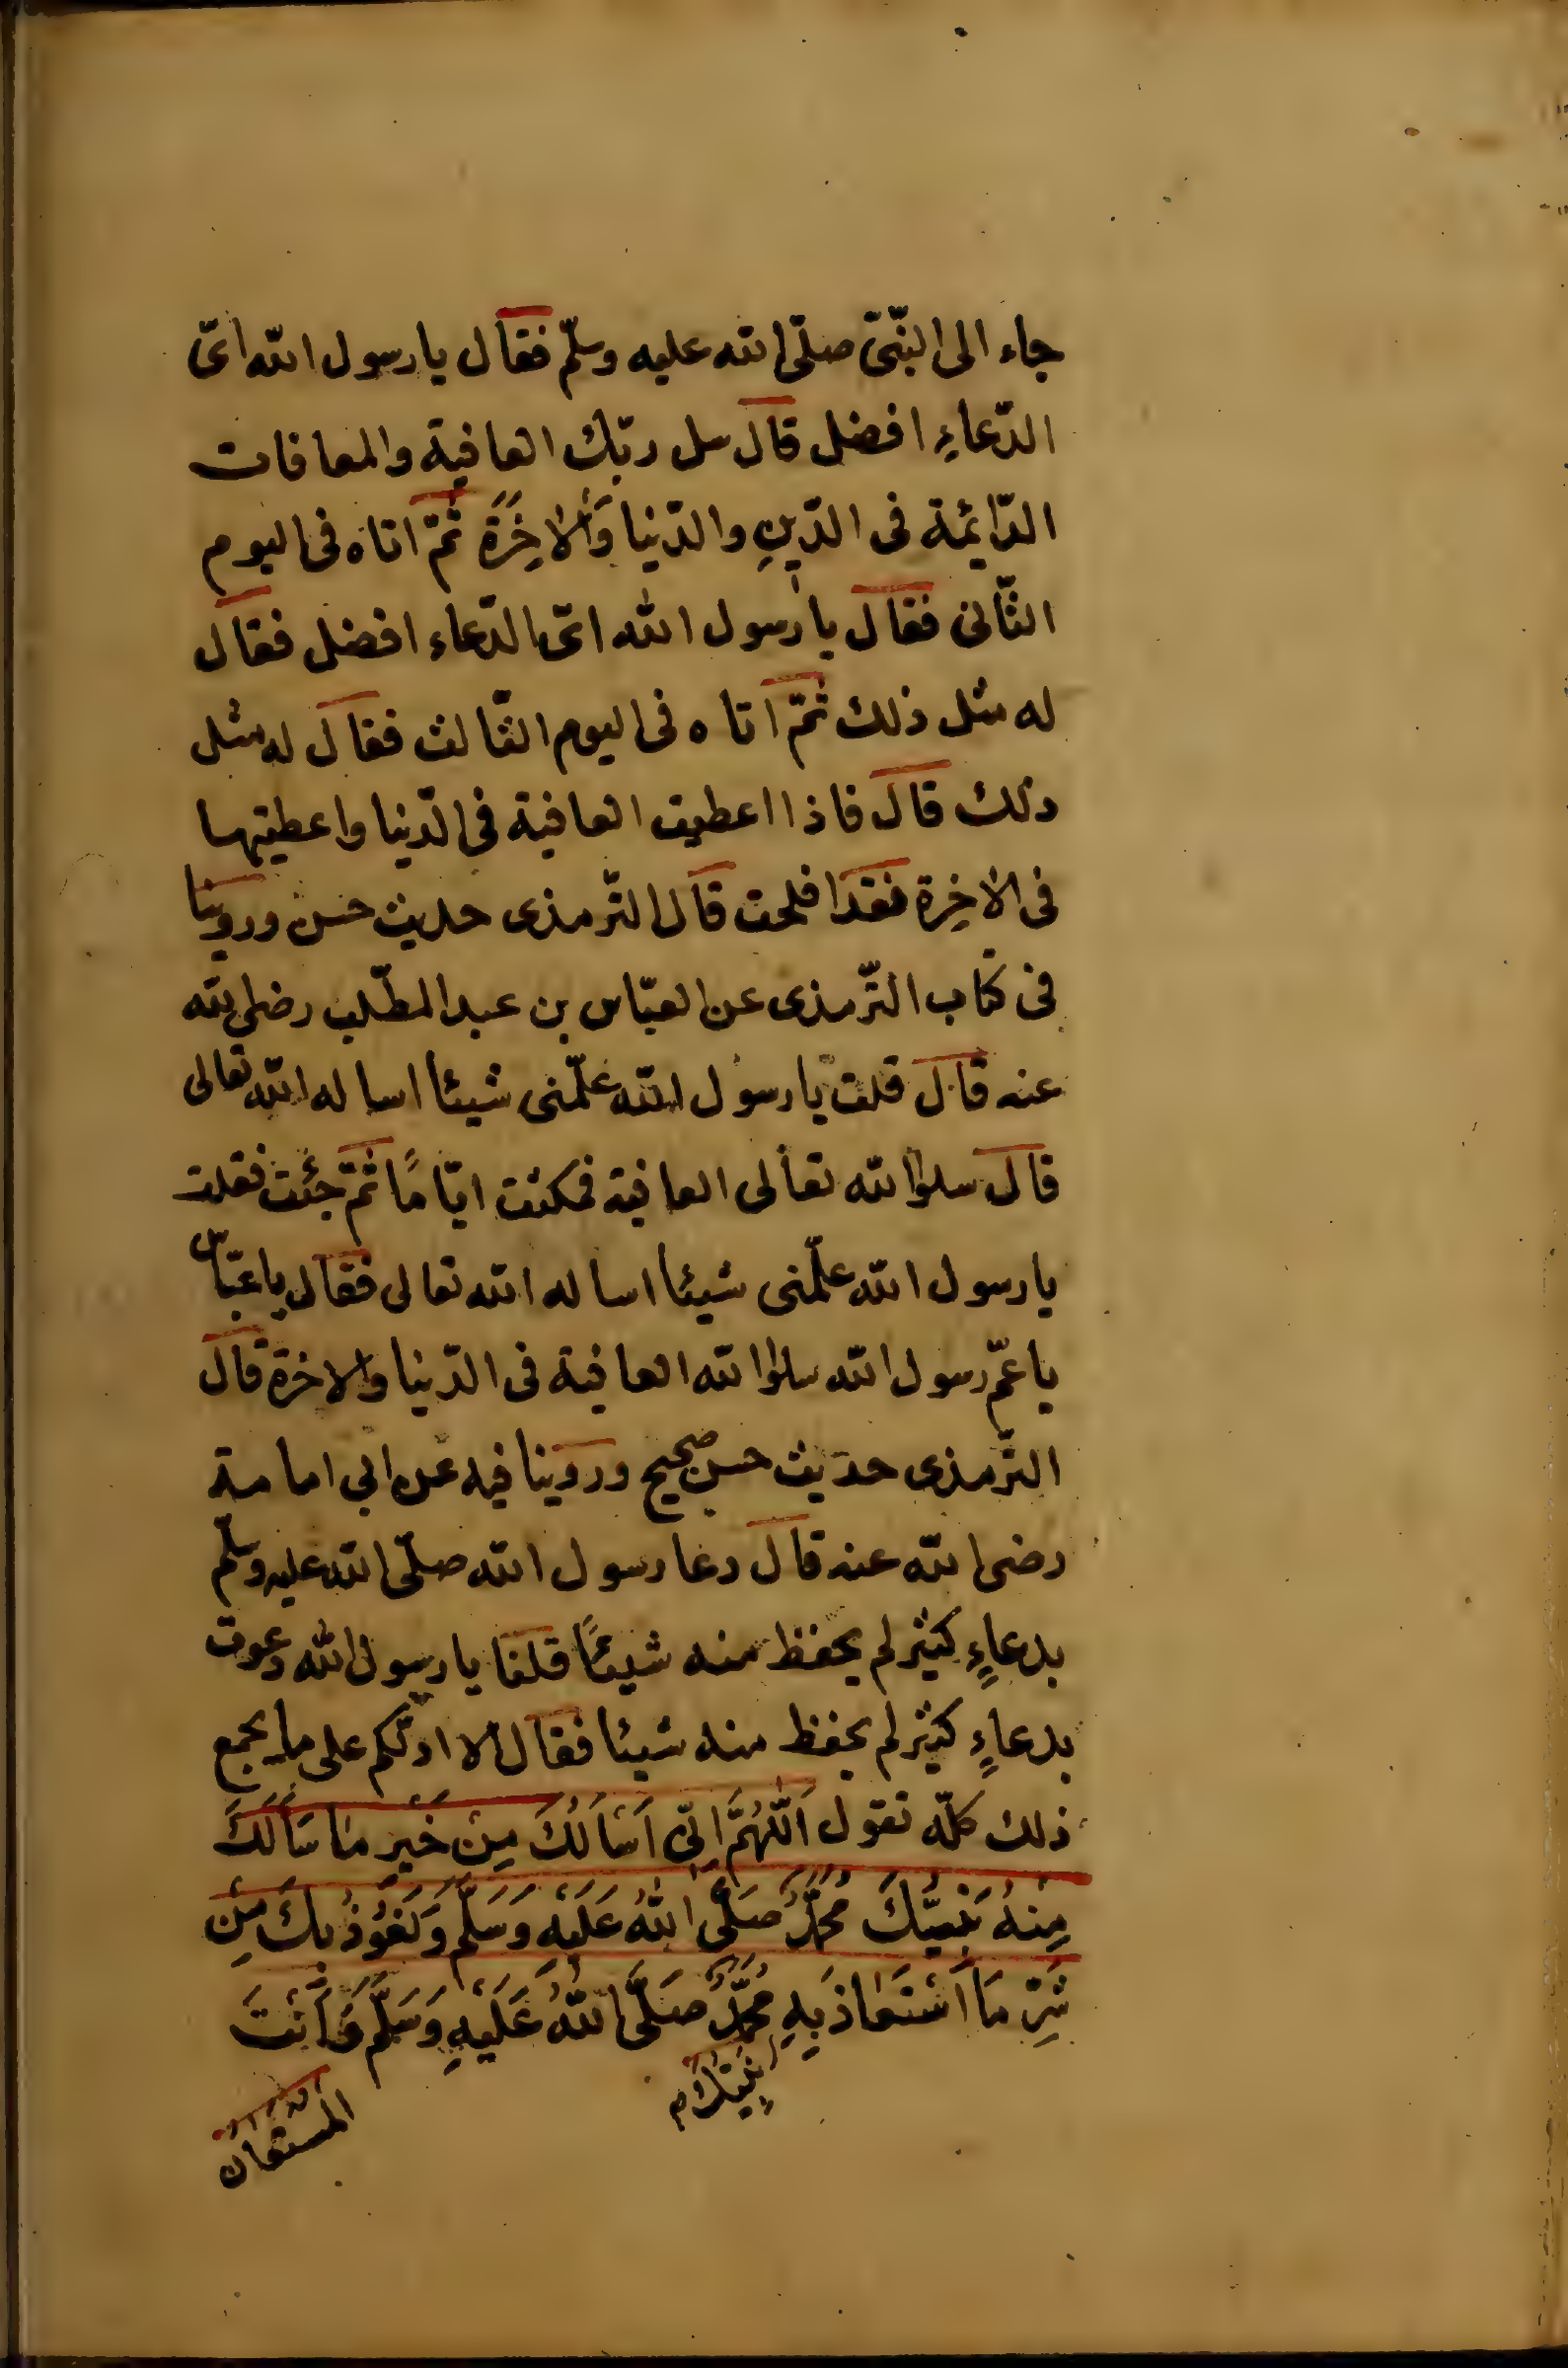 جاء الى النّبىّ صلّى الله عليه وسلّم فقال يا رسول الله اىّ
الدّعاءِ افضل قال سل ربّك العافية والمعافات
الدّائمة فى الدّينِ والدّنيا وَالاخِرَة ثمّ اتاه فى اليوم
الثّانى فقال يا رسول الله اىّ الدّعاء افضل فقال
له مثل ذلك ثمّ اتاه فى اليوم الثّالث فقال له مثل
ذلك قال فاذا اعطيت العافية فى الدّنيا واعطيتها
فى الاخِرة فقد افلحت قال التّرمذى حديث حسن وروينا
فى كتاب التّرمذى عن العبّاس بن عبد المطّلب رضى الله
عنه قال قلت يا رسول الله علّمنى شيئا اساله الله تعالى
قال سلوا الله تعالى العافية فمكثت ايّامًا ثمّ جئت فقلت
يا رسول الله علّمنى شيئا اساله الله تعالى فقال يا عبّاس
يا عمّ رسول الله سلوا الله العافية فى الدّنيا والاخرة قال
التّرمذى حديث حسن صحيح وروينا فيه عن ابى امامة
رضى الله عنه قال دعا رسول الله صلّى الله عليه وسلّم
بدعاءٍ كثير لم يحفظ منه شيئًا قلنا يا رسول الله دعوت
بدعاءٍ كثير لم يحفظ منه شيئا فقال الا ادلّكم على ما يجمع
ذلك كلّه تقول اَللّهُمَّ اِنّى اَسْاَلُكَ مِنْ خَيْرِ مَا سَاَلَكَ
مِنْهُ نَبِيُّكَ مُحَمَّدٌ صَلَّى اللهُ عَلَيْهِ وَسَلَّمَ وَنَعُوْذُ بِكَ مِنْ
شَرِّ مَا اسْتَعَاذَ بِهِ مُحَمَّدٌ صَلَّى اللهُ عَلَيْهِ وَسَلَّمَ وَاَنْتَ
نَبِيُّكَ م
المُسْتَعَانُ